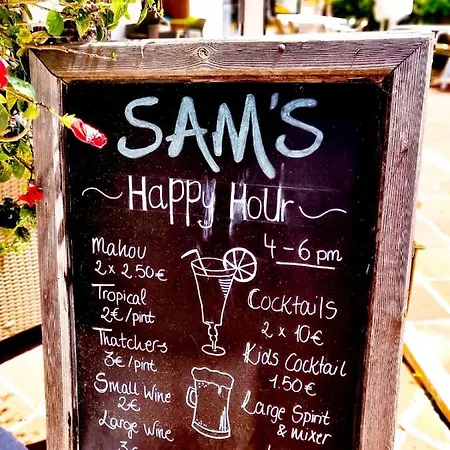 SAM'S
Happy Hour
4 – 6 pm
Mahou
2 x 2.50€
Tropical
2€/pint
Thatchers
3€/pint
Small Wine
2€
Large Wine
3€
Cocktails
2 x 10€
Kids Cocktail
1.50€
Large Spirit
& mixer